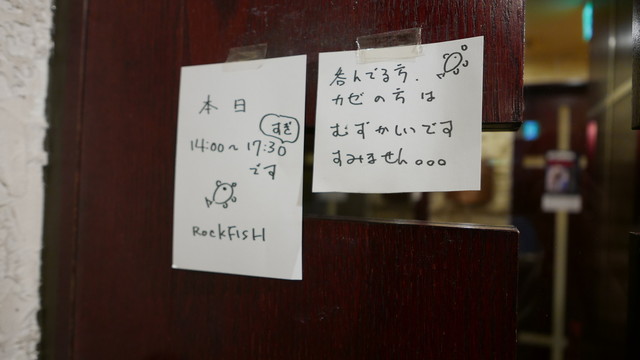 本日
すぎ
14:00～17:30
です
RockFISH
呑んでる方、
カゼの方は
むずかしいです
すみません。。。